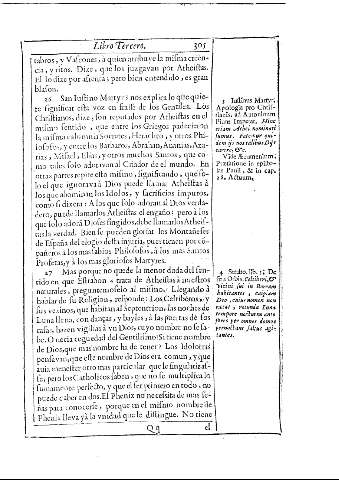 Libro Tercero, 305
tabros, y Vascones, à quien atribuye la misma creen-
cia, y ritos. Dize, que los juzgavan por Atheistas.
El lo dize por afrenta; pero bien entendido, es gran
blason.
26 San Justino Martyr 3 nos explica lo que quie-
re significar esta voz en frasse de los Gentiles. Los
Christianos, dize, son reputados por Atheistas en el
mismo sentido, que entre los Griegos padecieron
la misma calumnia Socrates, Heraclito, y otros Phi-
losofos, y entre los Barbaros, Abraham, Ananias, Aza-
rias, Misael, Elias, y otros muchos Santos, que co-
mo tales solo adoravan al Criador de el mundo. En
otras partes repite esta misma, significando, que so-
lo el que ignorava à Dios puede llamar Atheistas à
los que abominan los Idolos, y sacrificios impuros,
como si dixera: A los que solo adoran al Dios verda-
dero, puede llamarlos Atheistas el engaño: pero à los
que solo adorà Dioses fingidos, debe llamarlos Atheis-
tas la verdad. Bien se pueden gloriar los Montañeses
de España del elogio desta injuria, pues tienen por cò-
pañeros à los mas sabios Philosofos, à los mas Santos
Profetas, y à los mas gloriosos Martyres.
27 Mas porque no quede la menor duda del sen-
tido en que Estrabon 4 trata de Atheistas à nuestros
naturales; preguntemoselo al mismo: Llegando à
hablar de su Religion, responde: Los Celtiberos, y
sus vezinos, que habitan al Septentrion, las noches de
Luna llena, con danças, y bayles, à las puertas de sus
casas, hazen vigilias à vn Dios, cuyo nombre no se sa-
be. O necia ceguedad del Gentilismo! Si tiene nombre
de Dios, que mas nombre ha de tener? Los Idolatras
pensavan, que este nombre de Dios era comun, y que
avia menester otro mas particular que le singulariza-
se; pero los Catholicos saben, que no se multiplica lo
sumamente perfecto, y que el ser primero en todo, no
puede caber en dos. El Phenix no necessita de mas se-
ñas para conocerse, porque en el mismo nombre de
Phenix lleva yà la vnidad que le distingue. No tiene
Qq el
3 Iustinus Martyr,
Apologia pro Chris-
tianis, ad Antoninum
Pium Imperat. Hinc
etiam Athei nominati
sumus. Fatemur qui-
dem ejusmodi Deo-
rum, &c.
Vide Œcumenium,
Præfatione in epistolas
Pauli, & in cap.
28. Actuum.
4 Strabo, lib. 3. De
situ Orbis. Celtiberi, &
vicini sui in Boream
habitantes, cuipiam
Deo, cuius nomen non
extat, noctu in Pleni-
lunio ante portas
cum domibus
pernoctant, saltationes agi-
tantes.